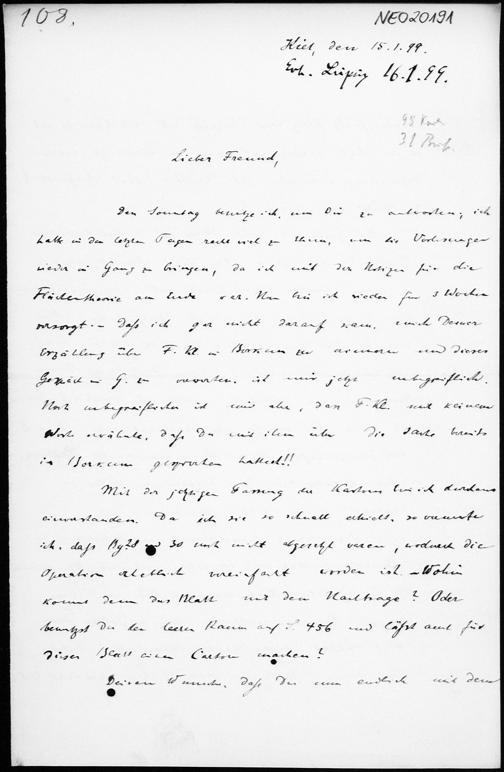 108.
NEO20191
Kiel, den 15.1.99.
Erh. Leipzig 16.1.99.
31
Lieber Freund,
Den Sonntag benutze ich, um Dir zu antworten; ich
hatte in den letzten Tagen recht viel zu thun, um die Vorlesungen
wieder in Gang zu bringen, da ich mit den Notizen für die
Flächentheorie am Ende war. Nun bin ich wieder für 3 Wochen
versorgt. – Daß ich gar nicht darauf kam, mich Deiner
Erzählung über F. Kl. in Borkum zu erinnern und dieses
Gespräch in G. zu verwerten, ist mir jetzt unbegreiflich.
Noch unbegreiflicher ist mir aber, dass F. Kl. mit keinem
Wort erwähnte, daß Du mit ihm über die Sache bereits
in Borkum gesprochen hattest!!
Mit der jetzigen Fassung des Kartons bin ich durchaus
einverstanden. Da ich sie so schnell erhielt, so vermute
ich, daß Bg 28 und 30 noch nicht abgesetzt waren, wodurch die
Operation erheblich vereinfacht worden ist. – Wohin
kommt denn das Blatt mit dem Nachtrage? Oder
benutzst Du den leeren Raum auf S. 456 und läßst auch für
dieses Blatt einen Carton machen?
Deinen Wunsch, daß Du nun endlich mit dem